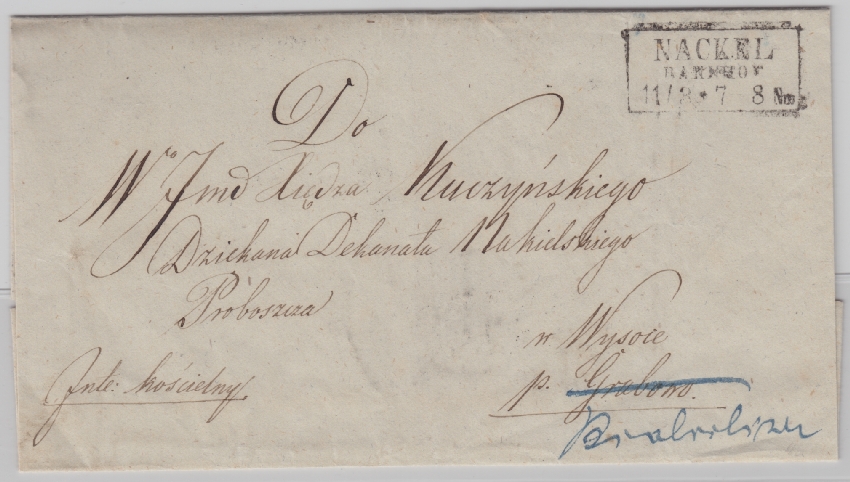 NACKEL
BAHNHOF
11/8 * 7 8 Nm
Do
Wo Jmd Xiędza Kuczyńskiego
Dziekana Dekanatu Nakielskiego
Próboszcza
w Wysoce
p. Grabowo.
Jnte: kościelny